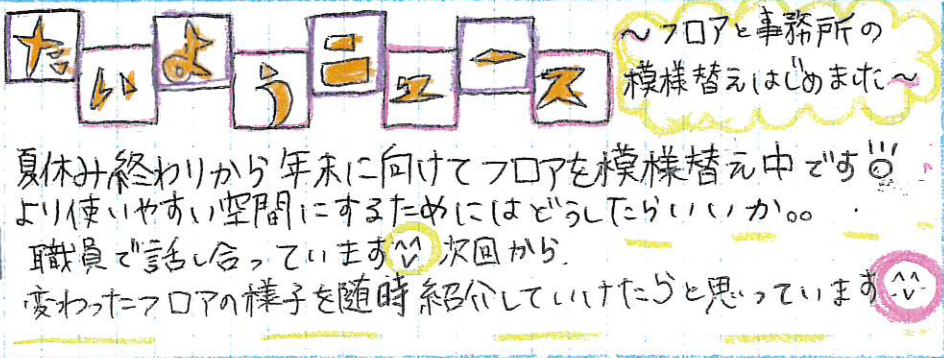 たいようニュース
～フロアと事務所の
模様替えはじめました～
夏休み終わりから年末に向けてフロアを模様替え中です
より使いやすい空間にするためにはどうしたらいいか。。
職員で話し合っています^^ 次回から
変わったフロアの様子を随時紹介していけたらと思っています^^